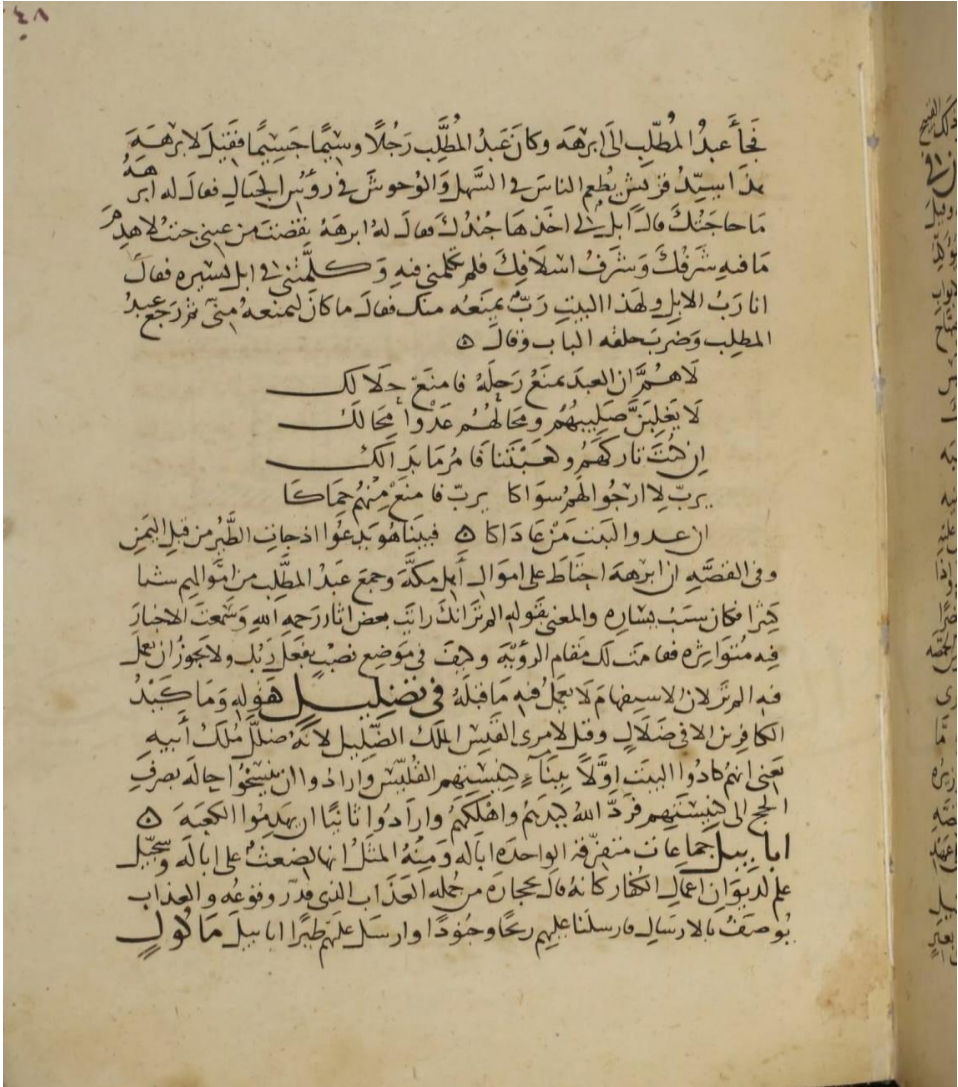 ٤٨
فجأ عبدُ المُطّلِب الى ابرهه وكان عَبدُ المُطَّلِب رَجُلًا وسِيمًا جَسِيمًا فقيلَ لابرهَهَ
هذا سيّدُ قريش يُطعِم الناسَ في السَّهلِ وَالوُحوشَ في رؤُسِ الجبالِ فقالَ له ابرهَهُ
مَا حاجَتُكَ قالَ ابلِي اخَذهَا جُندُكَ فقالَ لهُ ابرهَهُ نقصتَ من عيني جئتُ لاهدِمَ
مَا فيه شرَفُكَ وَشَرَفُ اسلَافِكَ فلم تكلمني فيهِ وَكلَّمتَني في ابل يَسيره فقالَ
انا رَبُ الابِلِ ولهذا البيتِ رَبٌّ يمنَعُه منك فقالَ ما كانَ ليمنعهُ مِنّي ثم رَجَعَ عبدُ
المطلِب وَضربَ حلقه الباب وقالَ ه
لَاهُمَّ ان العبدَ يمنَعُ رَحلَهُ فامنَعْ حِلَالك
لَا يَغلِبَنَّ صَلِيبهُم ومِحَالهُم عَدْوًا مِحَالكَ
اِن كُنتَ تاركَهُم وكعبَتَنا فَامُر مَا بدَا لكَ
يربّ لا ارجُوا لهم سوَاكا يربّ فامنَعْ مِنهُم حِمَاكَا
ان عدو البَيت مَن عَادَاكا ه فبينَا هُوَ يَدعُوا اذ جاتِ الطَّيرُ من قِبلِ اليَمَنِ
وفي القصَّهِ ان ابرههَ احتاطَ على اموَالِ أهلِ مكَّةَ وجمعَ عَبدُ المطَّلِبِ من اموَالهِم شيا
كثيرا فكان سَبَبُ يسَارِه والمعنى بقولِه الم ترَ انكَ رايتَ بعضَ اثار رَحمةِ اللهِ وَسَمِعتَ الاخبارَ
فِيه مُتَواتره فقامَت لك مَقام الرؤيَه وكيفَ في مَوضِعِ نَصبٍ بفعَلَ رَبُّك ولا يجوزُ ان يعملَ
فيه الم ترَ لانُ الاستفهامَ لَا يعمَلُ فيه مَا قبلَهُ في تضليل كقوله وَمَا كَيدُ
الكافِرين الا في ضَلَالٍ وقيل لامرِئ القيس الملك الضّليل لانَّهُ ضلّلَ مُلكَ أبيهِ
يَعني انهم كادُوا البيتَ اوَّلًا بِبِنَآءِ كنيسَتِهم القُلَّيس وارادوا ان ينسخُوا حاله بصرفِ
الحج الى كنيسَتِهم فَردَّ اللهُ كيدَهُم واهلكَهُم وارادُوا ثانيًا ان يهدِمُوا الكعبَهَ ه
ابابيل جماعات متفرّقه الواحده ابَاله وَمِنهُ المثَلُ انها لضِغثٌ على ابالَه وَسِجّيل
علم لديوَان اعمالِ الكفار كانهُ قال بحجارَه من جُمله العَذَاب الذي قُدّر وقوعُه والعذاب
يُوصَفُ بالارسَالِ فارسلنا عليهم ريحًا وجنودًا وارسل عليهم طيرًا ابابيل مَاكُولٍ